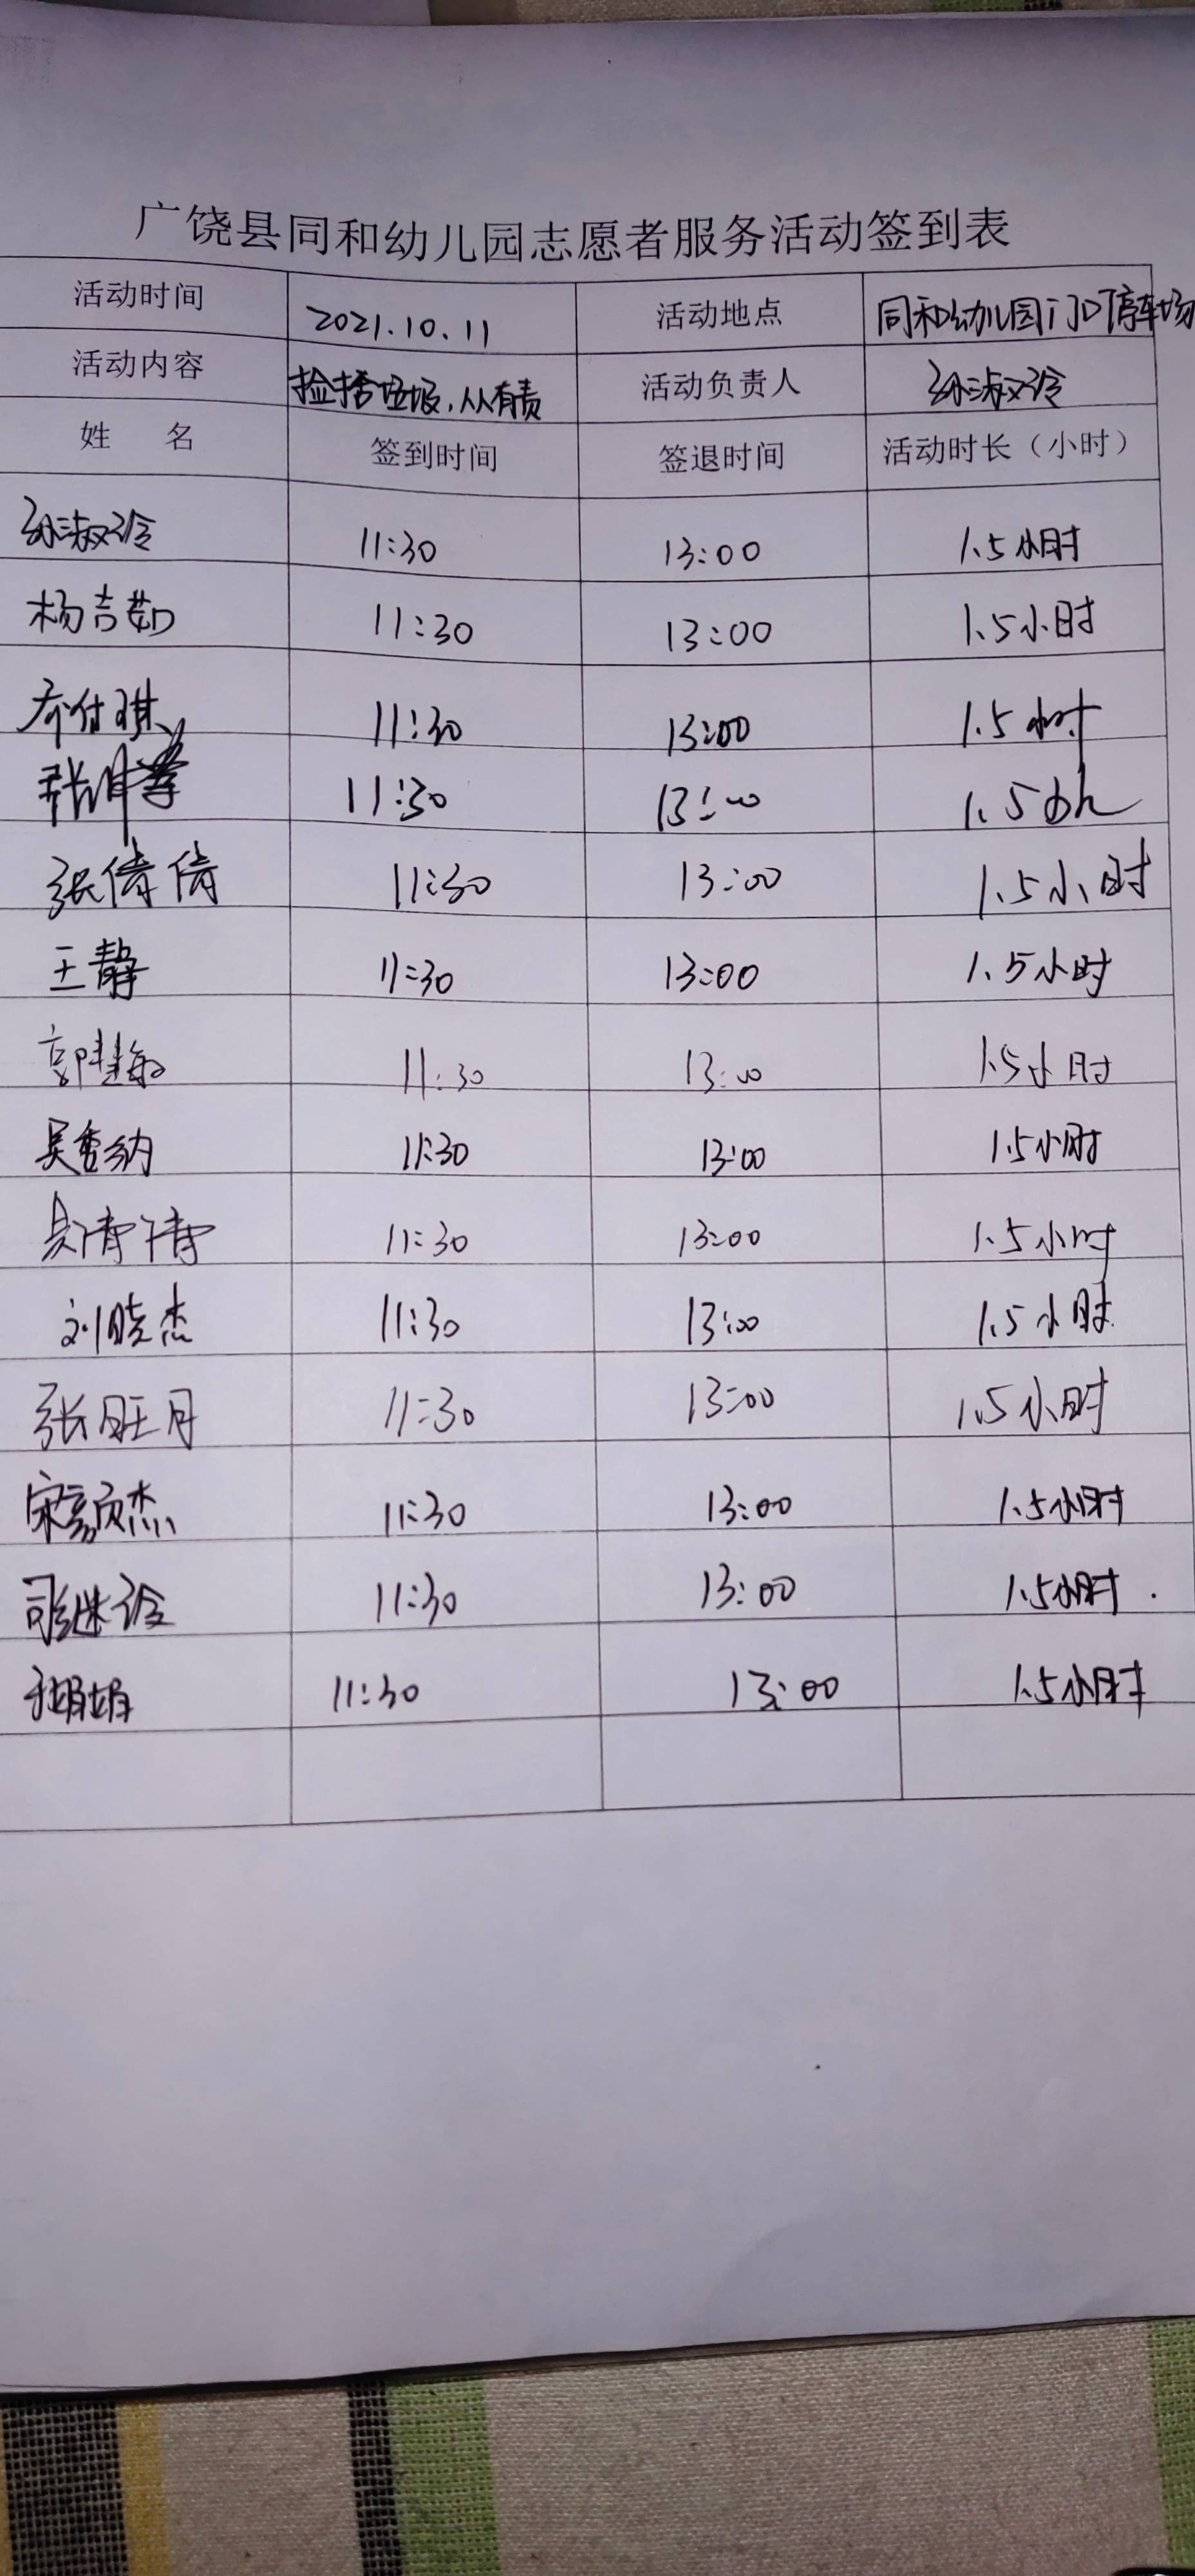 广饶县同和幼儿园志愿者服务活动签到表
活动时间 2021.10.11 活动地点 同和幼儿园门口停车场
活动内容 捡拾垃圾,人人有责 活动负责人 孙淑冷
姓 名 签到时间 签退时间 活动时长（小时）
孙淑冷 11:30 13:00 1.5小时
杨吉茹 11:30 13:00 1.5小时
乔付琪 11:30 13:00 1.5小时
11:30 13:00 1.5小时
张倩倩 11:30 13:00 1.5小时
王静 11:30 13:00 1.5小时
郭慧敏 11:30 13:00 1.5小时
吴秀纳 11:30 13:00 1.5小时
吴倩倩 11:30 13:00 1.5小时
刘晓杰 11:30 13:00 1.5小时
张旺月 11:30 13:00 1.5小时
宋颜杰 11:30 13:00 1.5小时
司继玲 11:30 13:00 1.5小时.
11:30 13:00 1.5小时